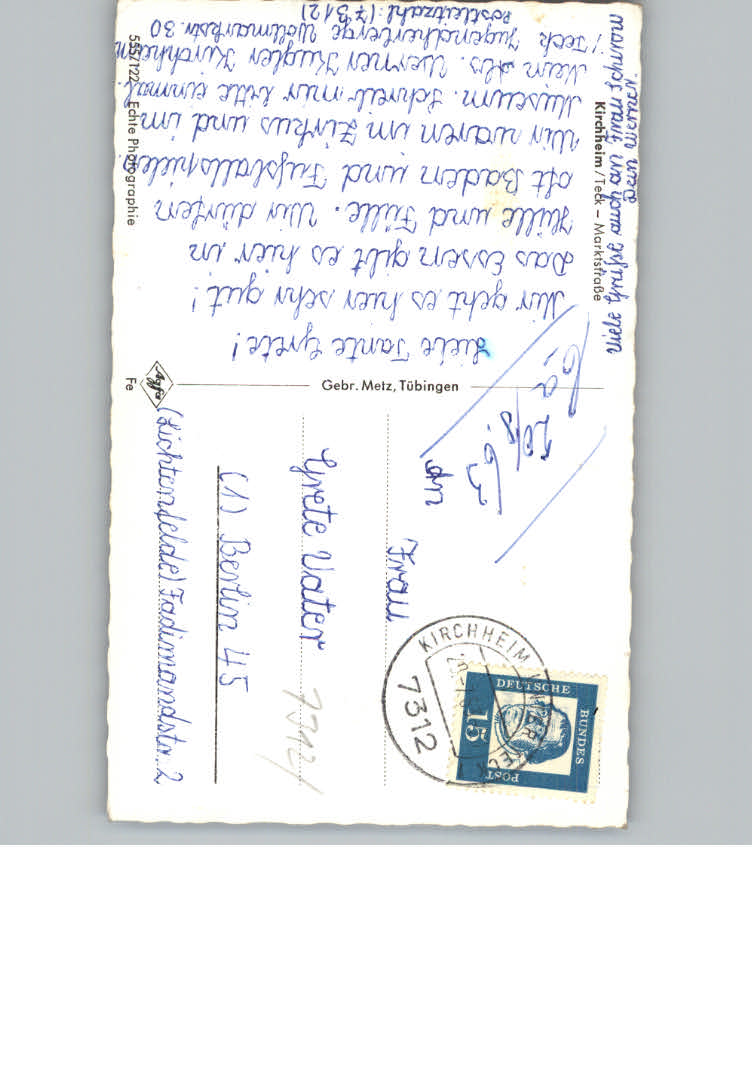 Liebe Tante Grete!
Mir geht es hier sehr gut!
Das Essen gibt es hier in
Hülle und Fülle. Wir dürfen
oft Baden und Fußballspielen.
Wir waren im Zirkus und im
Museum. Schreib mir bitte einmal.
Mein Abs. Werner Kugler Kirchheim
/Teck Jugendherberge Wollmarkstr. 30
Postleitzahl: (7312)
Viele Grüße an und
Dein Werner
Kirchheim/Teck – Marktstraße
555/122 Echte Photographie
Gebr. Metz, Tübingen
Agfa
Fe
20/8. 63
Frau
Grete Vater
(1) Berlin 45
(Lichtenfelde) Fadimandstr. 2
7312/
KIRCHHEIM UNTER TECK
7312
DEUTSCHE
BUNDES
POST
15